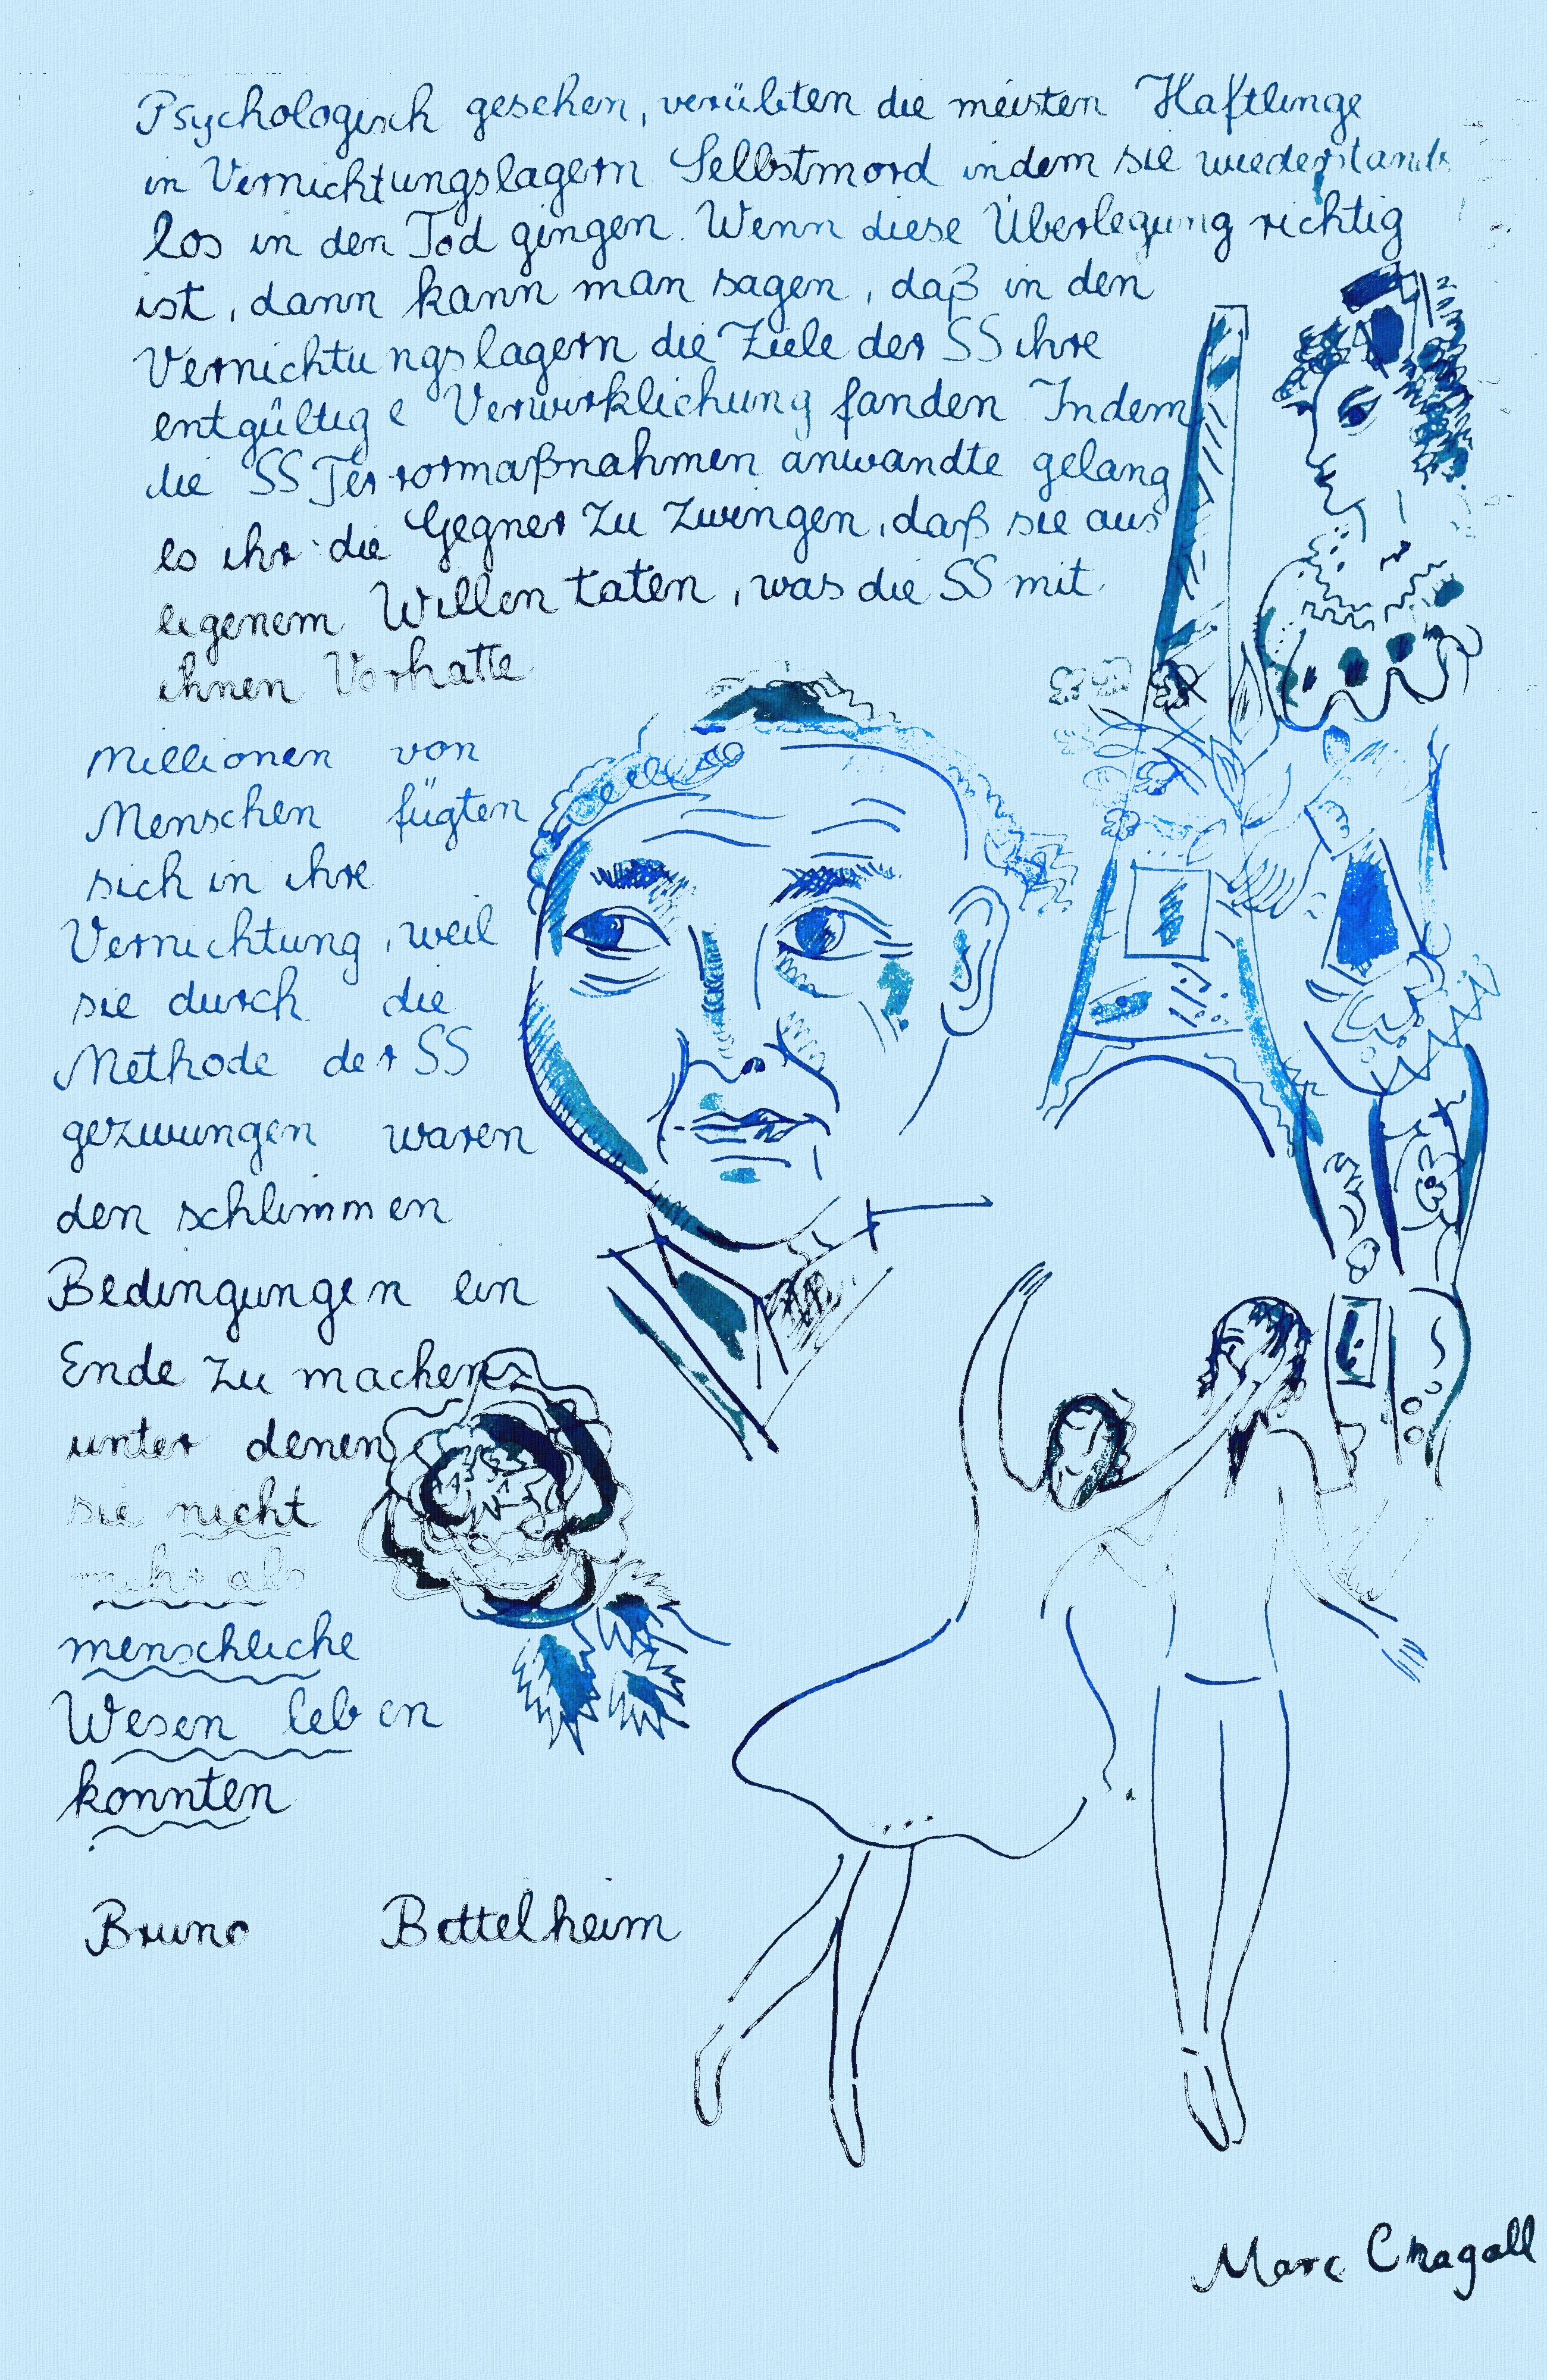 Psychologisch gesehen, verübten die meisten Haftlinge
in Vernichtungslagern Selbstmord indem sie wiederstands
los in den Tod gingen. Wenn diese Überlegung richtig
ist, dann kann man sagen, daß in den
Vernichtungslagern die Ziele der SS ihre
entgültige Verwirklichung fanden Indem
die SS Terrormaßnahmen anwandte gelang
es ihr die Gegner zu zwingen, daß sie aus
eigenem Willen taten, was die SS mit
ihnen Vorhatte
Millionen von
Menschen fügten
sich in ihre
Vernichtung, weil
sie durch die
Methode der SS
gezwungen waren
den schlimmen
Bedingungen ein
Ende zu machen
unter denen
sie nicht
mehr als
menschliche
Wesen leben
konnten
Bruno Bettelheim
Marc Chagall